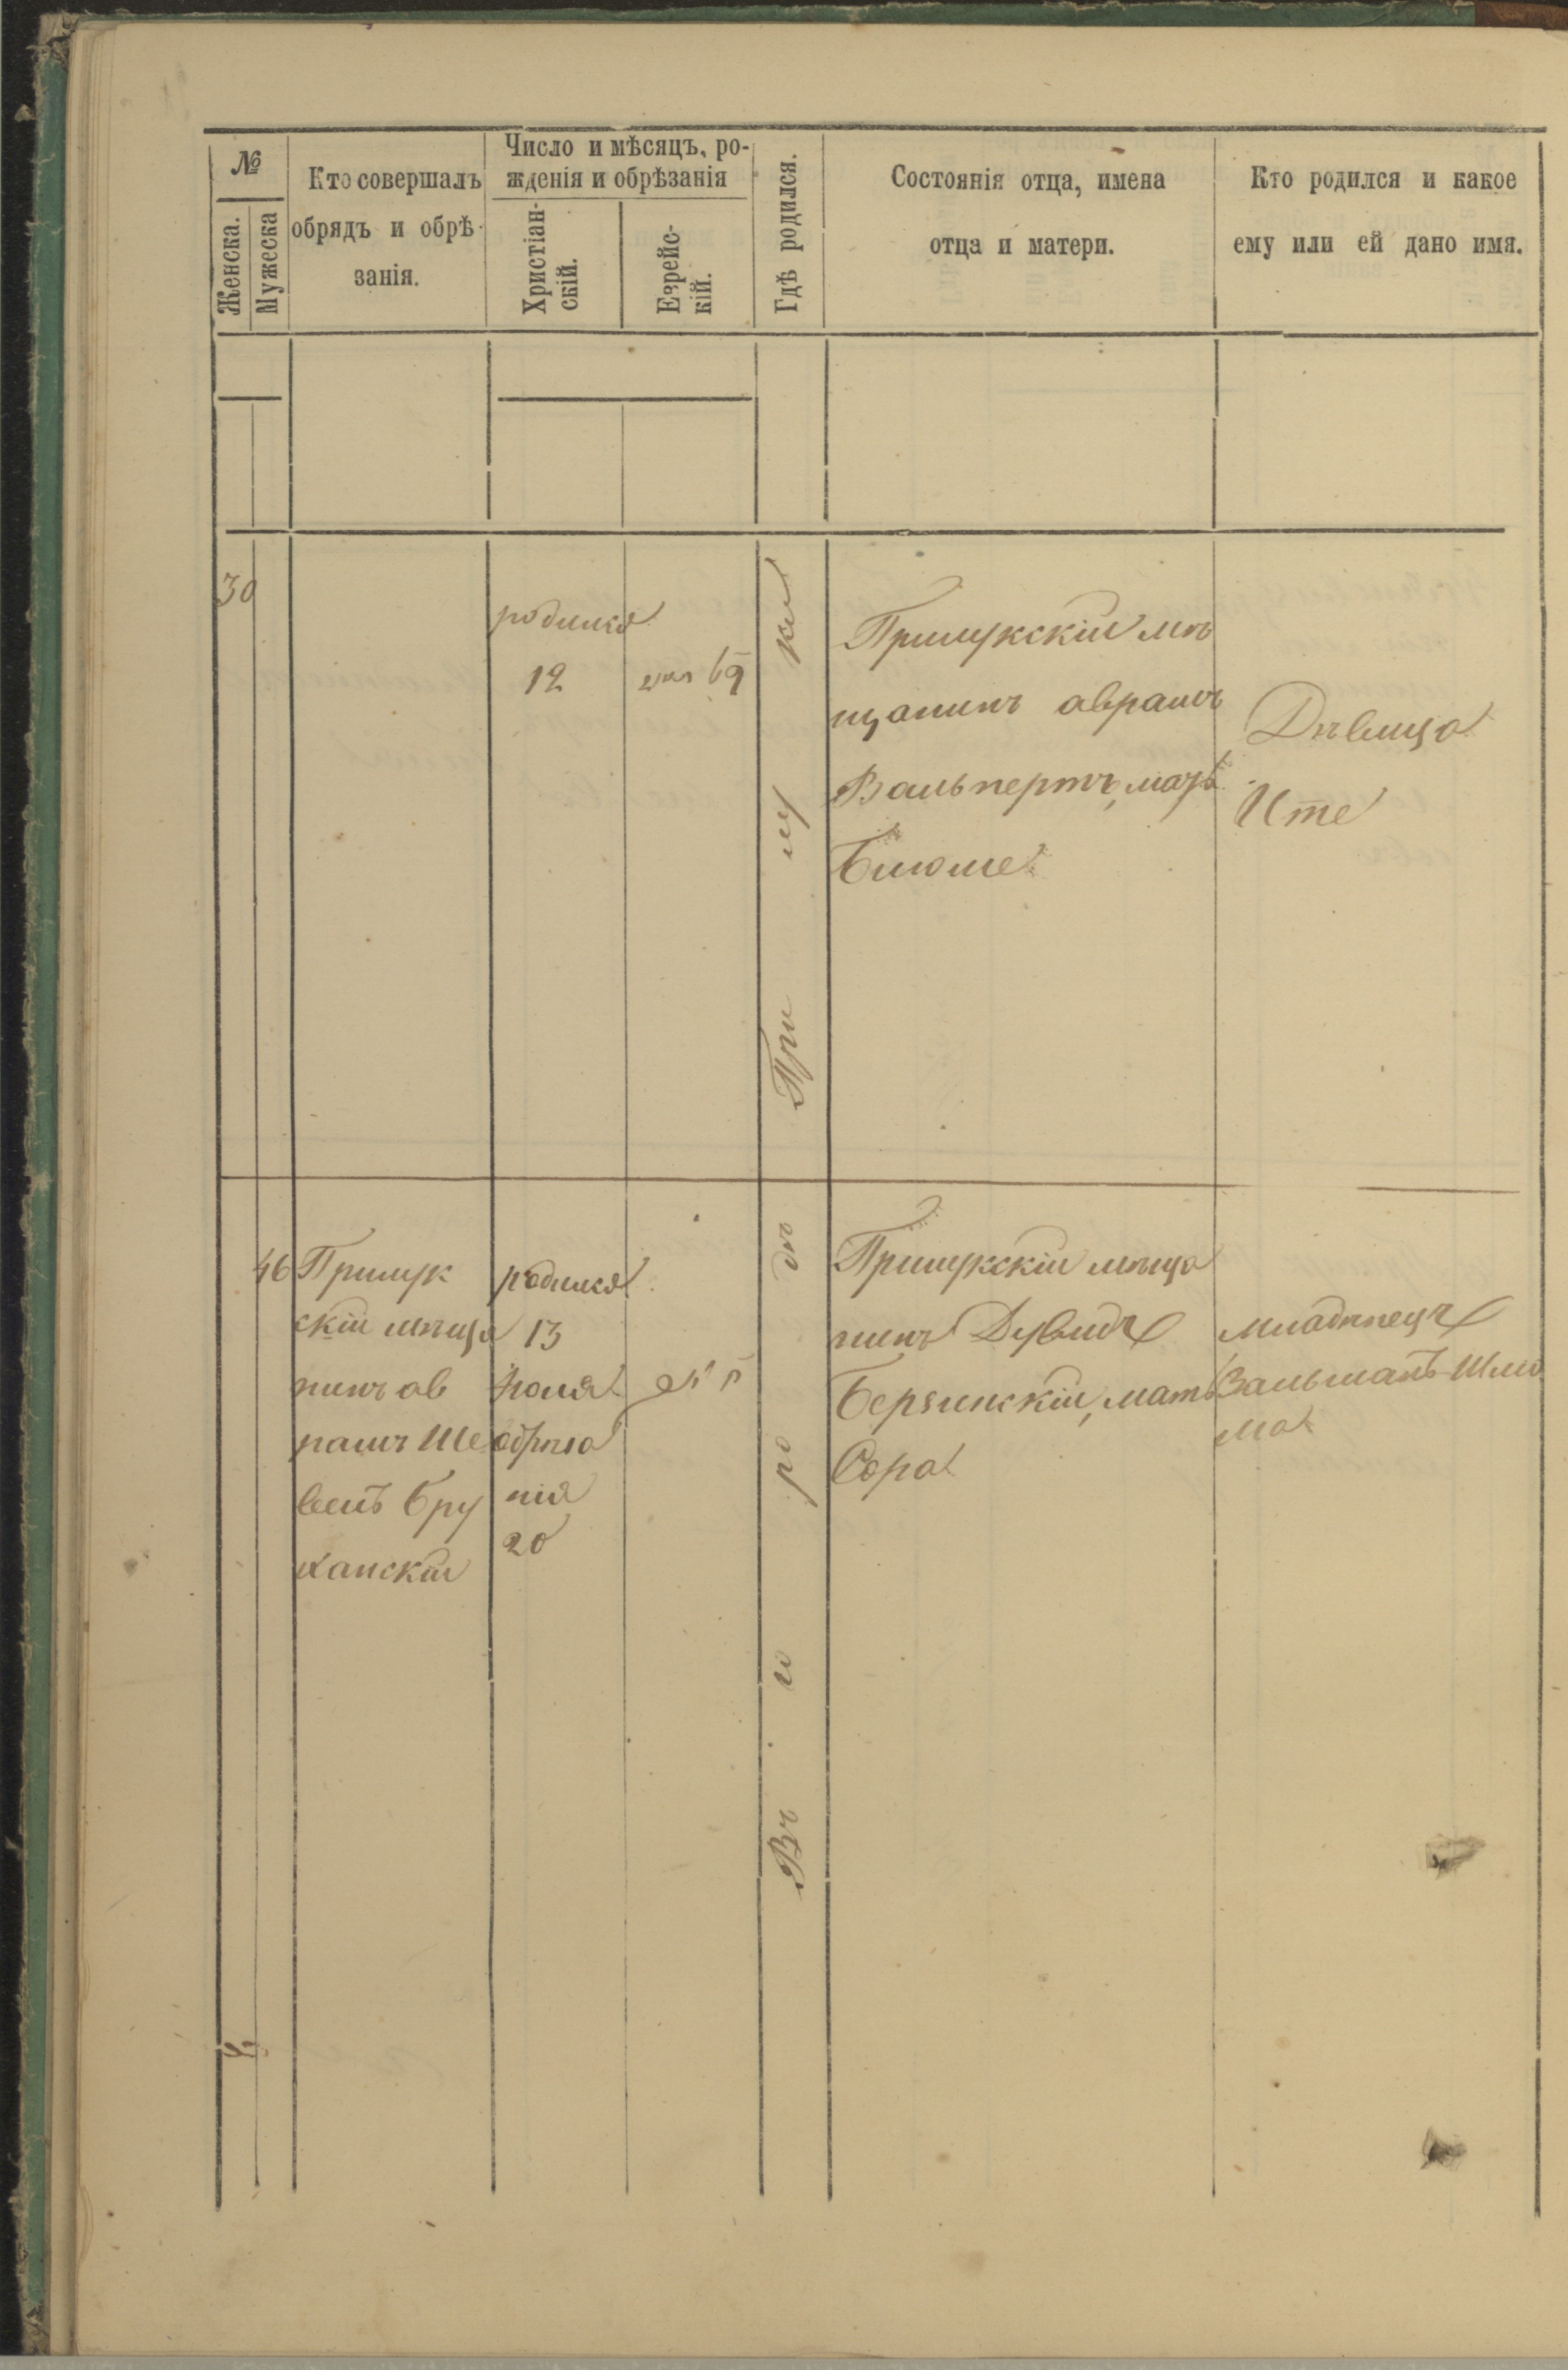 №
Женска.
Мужеска
Кто совершалъ
обрядъ и обрѣ-
занія.
Число и мѣсяцъ, ро-
жденія и обрѣзанія
Христіан-
скій.
Еврейс-
кій.
Гдѣ родился.
Состоянія отца, имена
отца и матери.
Кто родился и какое
ему или ей дано имя.
30
родился
12
Прилукскій мѣ
щанинъ аврамъ
Вальпертъ, мать
Блюме
Дѣвица
Ите
Въ го ро дѣ При лу ки
46
Прилук
скій мѣща
нинъ ав
рамъ Ше
велъ Бру
ханскій
родился
13
Іюля
обрѣза
нія
20
Прилукскій мѣща
нинъ Дувидъ
Берзинскій, мать
Сора
младѣнецъ
Зальманъ-Шлio
ма